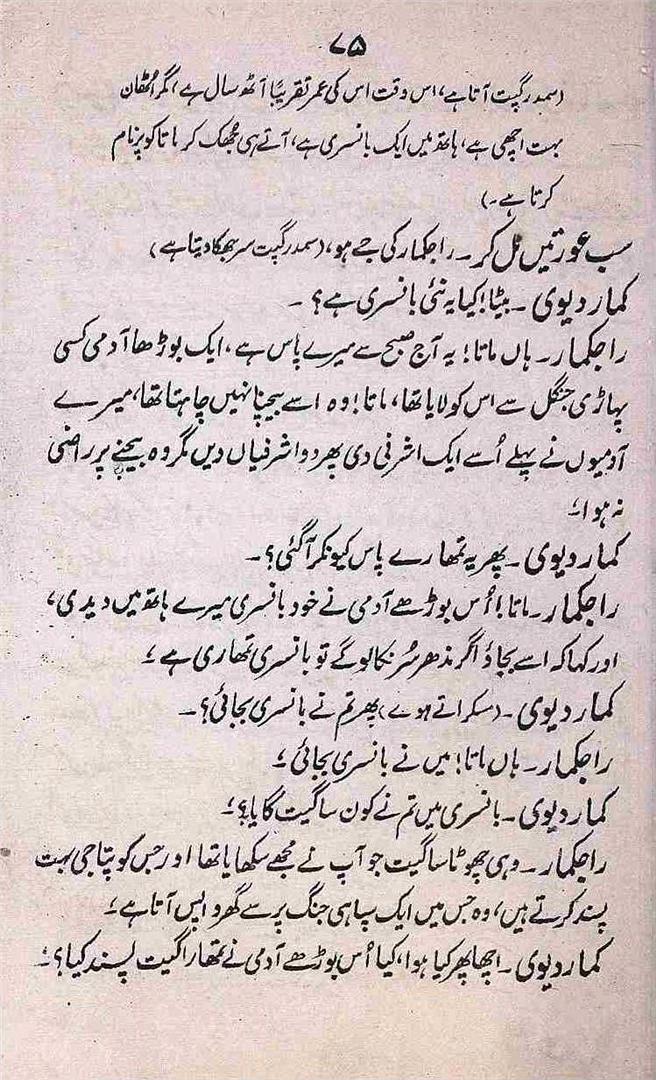 ۷۵
(سمدر گپت آتا ہے، اس وقت اس کی عمر تقریباً آٹھ سال ہے، مگر اٹھان
بہت اچھی ہے، ہاتھ میں ایک بانسری ہے، آتے ہی جُھک کر ماتا کو پرنام
کرتا ہے۔)
سب عورتیں مل کر۔ راجکمار کی جے ہو، (سمدر گپت سر جھکا دیتا ہے)
کمار دیوی۔ بیٹا! کیا یہ نئی بانسری ہے؟ ۔
راجکمار۔ ہاں ماتا! یہ آج صبح سے میرے پاس ہے، ایک بوڑھا آدمی کسی
پہاڑی جنگل سے اس کو لایا تھا، ماتا! وہ اسے بیچنا نہیں چاہتا تھا، میرے
آدمیوں نے پہلے اُسے ایک اشرفی دی پھر دو اشرفیاں دیں مگر وہ بیچنے پر راضی
نہ ہوا؛
کمار دیوی۔ پھر یہ تمھارے پاس کیونکر آگئی؟۔
راجکمار۔ ماتا! اُس بوڑھے آدمی نے خود بانسری میرے ہاتھ میں دیدی،
اور کہا کہ اسے بجاؤ اگر مدھر سُر نکالو گے تو بانسری تمھاری ہے؛
کمار دیوی۔ (مسکراتے ہوے) پھر تم نے بانسری بجائی؟۔
راجکمار۔ ہاں ماتا! میں نے بانسری بجائی؛
کمار دیوی۔ بانسری میں تم نے کون سا گیت گایا؟؛
راجکمار۔ وہی چھوٹا سا گیت جو آپ نے مجھے سکھایا تھا اور جس کو پتا جی بہت
پسند کرتے ہیں، وہ جس میں ایک سپاہی جنگ پر سے گھر واپس آتا ہے؛
کمار دیوی۔ اچھا پھر کیا ہوا، کیا اُس بوڑھے آدمی نے تمھارا گیت پسند کیا؟؛